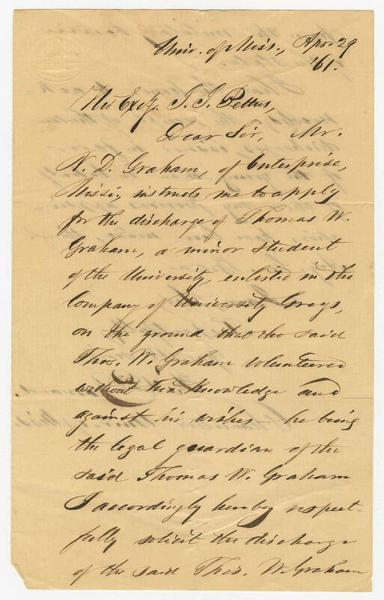 Univ. of Miss., Apr 29
'61.
His Excy. J. J. Pettus,
Dear Sir, Mr.
N. D. Graham, of Enterprise,
Missi, instructs me to apply
for the discharge of Thomas W.
Graham, a minor student
of the University enlisted in the
Company of University Greys,
on the ground that the said
Thos. W. Graham volunteered
without his knowledge and
against his wishes he being
the legal guardian of the
said Thomas W. Graham
I accordingly hereby respect-
fully solicit the discharge
of the said Thos. W. Graham